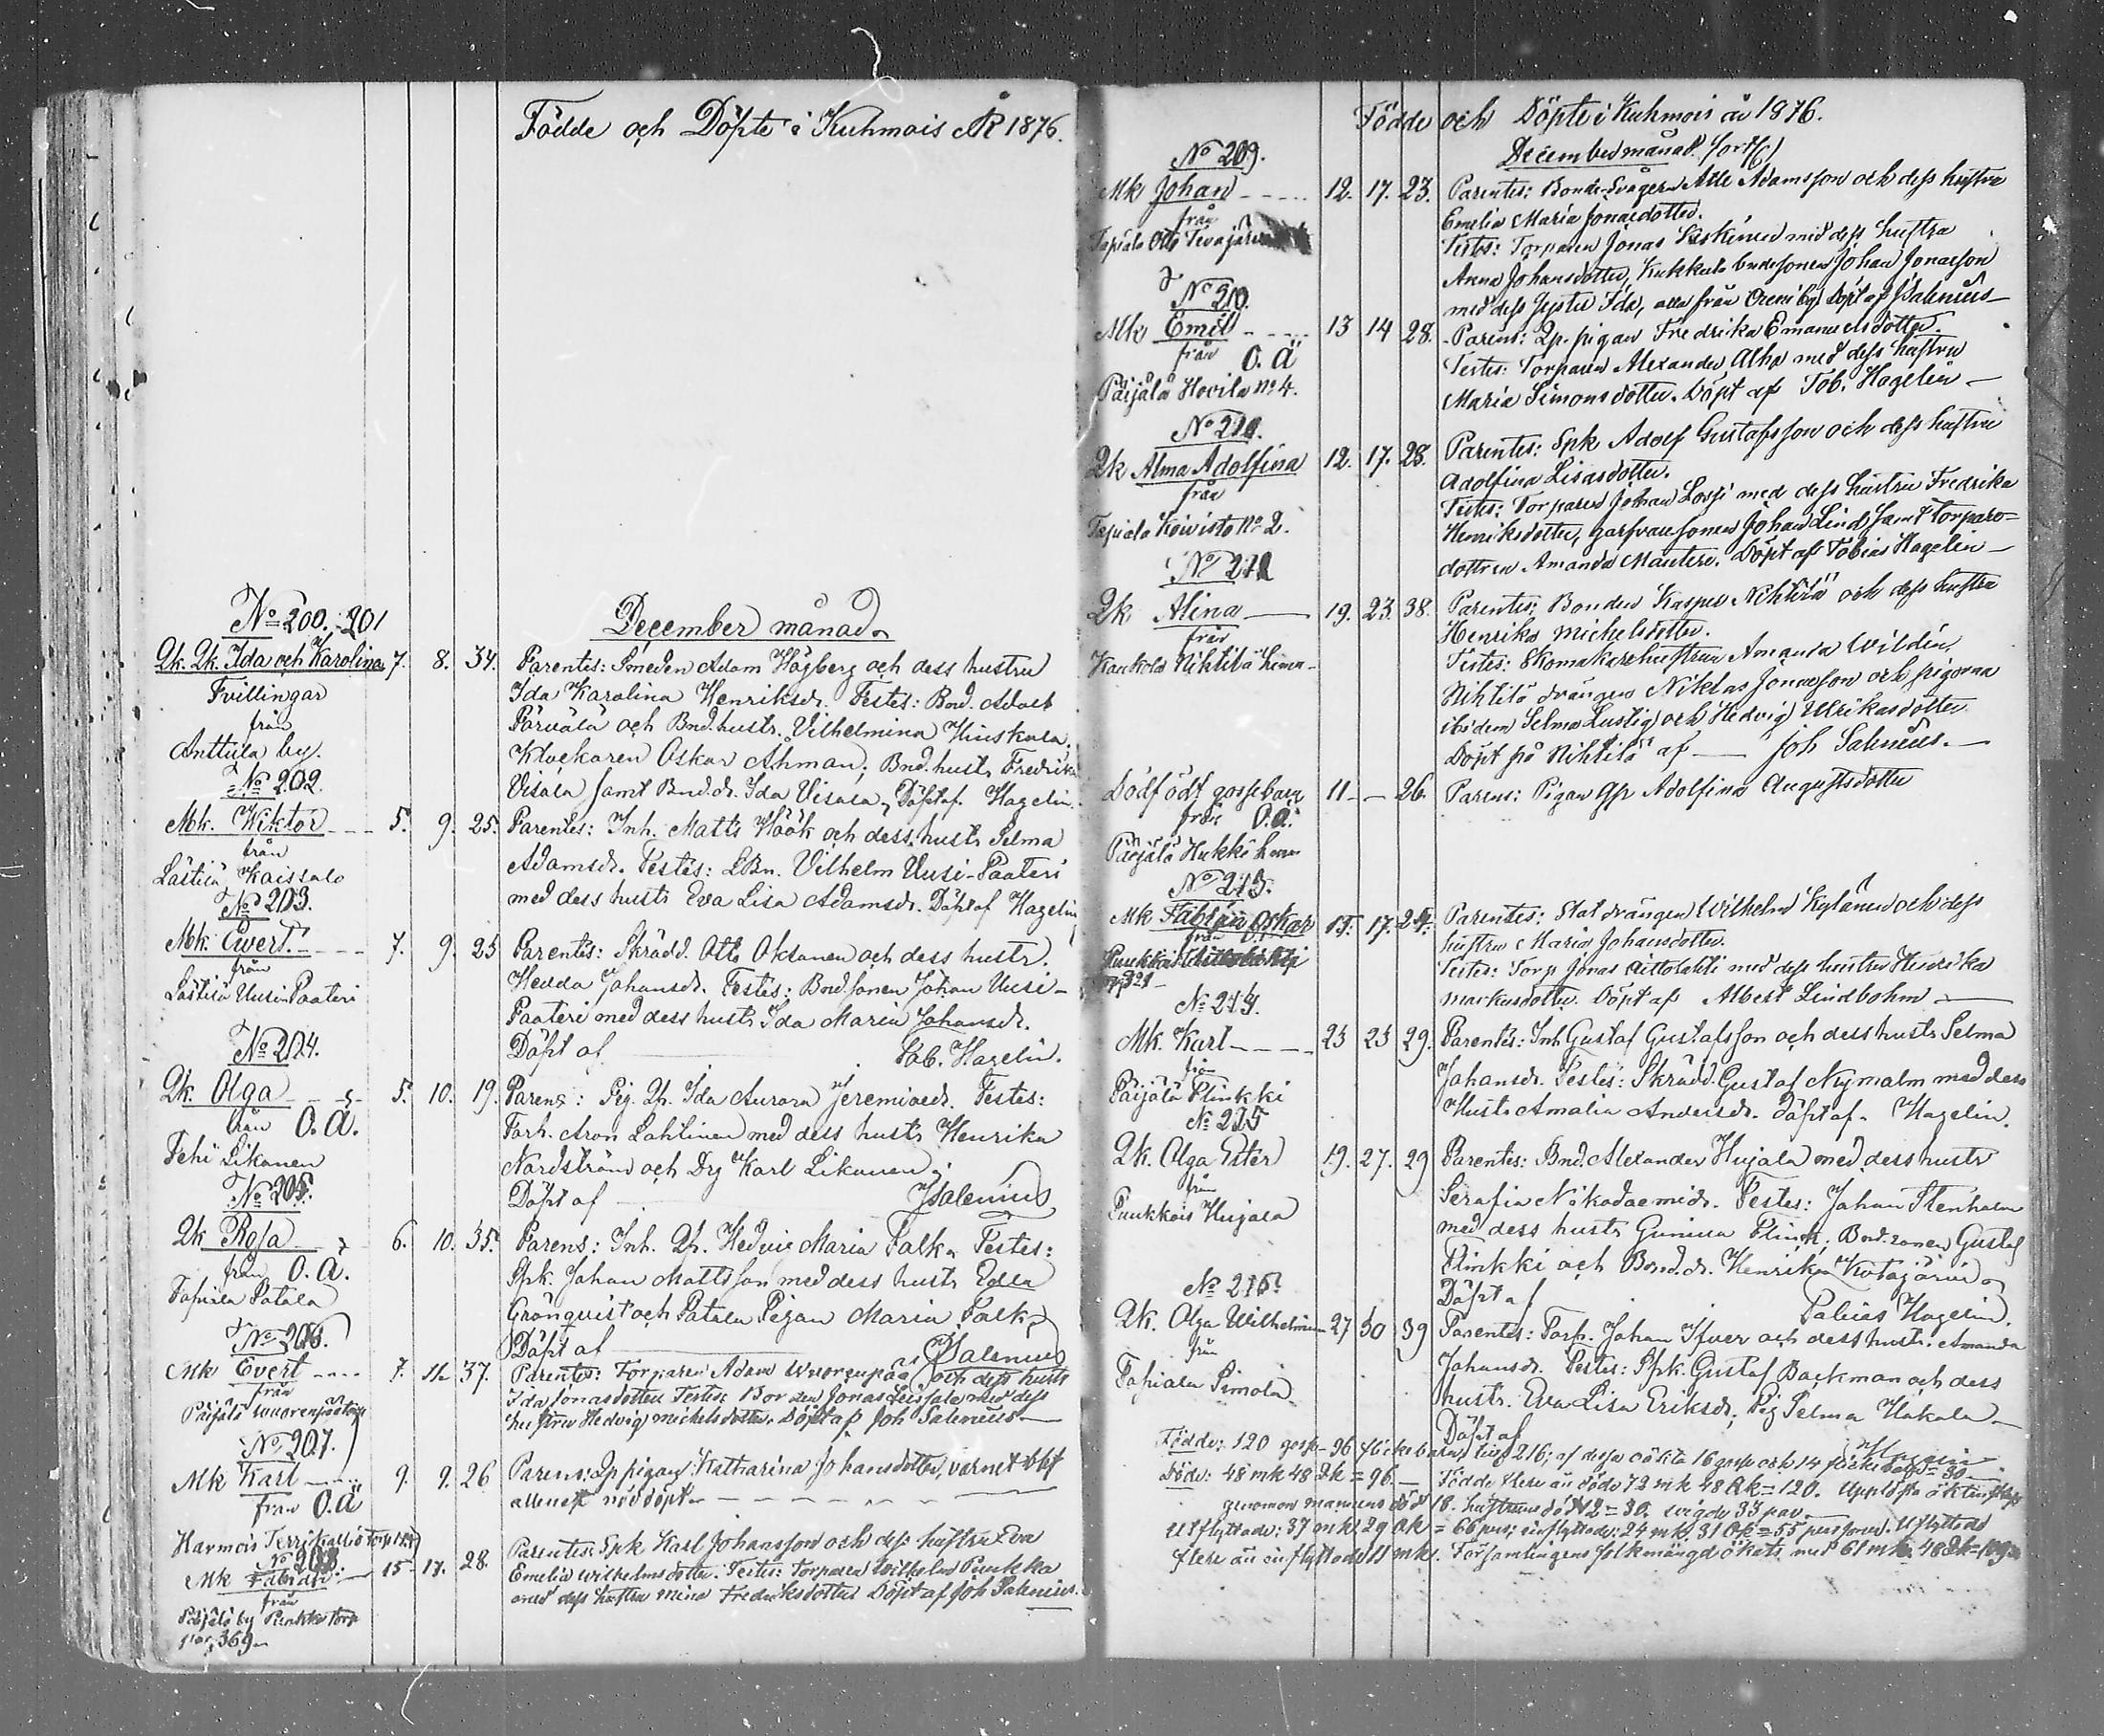 Födde och Döpte i Kuhmois ÅR 1876.
December månad.
No 200.-201
Qk. Qk. Ida och Karolina 7. 8. 34.
Tvillingar
från
Anttula by.
Parentes: Smeden Adam Högberg och dess hustru
Ida Karolina Henriksdr. Testes: Bnd. Adolf
Pärvälä och Bnd.hustr. Vilhelmina Hinskala.
Klockaren Oskar Åhman; Bnd.hustr Fredrika
Visala samt Bnd.dr. Ida Visala, Döpt af Hagelin.
No 202.
Mk. Wiktor 5. 9. 25.
från
Lästilä Kaissalo
Parentes: Inh. Matts Höök och dess hustr Selma
Adamsdr. Testes: LBn. Vilhelm Uusi-Paateri
med dess hustr Eva Lisa Adamsdr. Döpt af Hagelin
No 203.
Mk. Evert. 7. 9. 25
från
Lästilä Uusi Paateri
Parentes: Skrädd. Otto Oksanen och dess hustr.
Hedda Johansdr. Testes: Bnd.sonen Johan Uusi-
Paateri med dess hustr Ida Maria Johansdr.
Döpt af Tob. Hagelin.
No 204.
Qk. Olga 5. 10. 19.
från O.Ä.
Tehi Likonen
Parens: Pig. Qp. Ida Aurora Jeremiaedr. Testes:
Torp. Aron Lahtinen med dess hustr Henrika
Nordström och Drg Karl Likonen;
Döpt af JSalenius
No 205.
Qk Rosa 6. 10. 35.
från O.Ä.
Tapiala Patala
Parens: Inh. Qp. Hedvig Maria Falk. Testes:
Spk. Johan Mattsson med dess hustr Edla
Grönquist och Patala Pigan Maria Falk,
Döpt af JSalenius
No 206.
Mk Evert 7. 11. 37.
från
Päijälä Wuorenpää torp
Parentes: Torparen Adam Wuorenpää och dess hustr
Ida Jonasdotter Testes: Bonden Jonas Leissala med dess
hustru Hedvig Michelsdotter. Döpt af Joh Salenius
No 207.
Mk Karl 9. 9. 26
från O.Ä
Harmois Terrikallio torp
Parens: Qp pigan Katharina Johansdotter, varnet blef
allenast nöddöpt
No 208.
Mk Fabian 15 17. 28.
från
Päijälä by Punkka torp
pag 369
Parentes: Spk Karl Johansson och dess hustru Eva
Emelia Wilhelmsdotter. Testes: Torparen Wilhelm Punkka
med dess hustru Mina Fredriksdotter Döpt af Joh Salenius.
Födde och Döpte i Kuhmois år 1876.
December månad. forts
No 209.
Mk Johan 12. 17. 23.
från
Tapiala Tevajärvi
Parentes: Bonde-Svågern Atle Adamsson och dess hustru
Emelia Maria Jonasdotter.
Testes: Torparen Jonas Keskinen med dess hustru
Anna Johansdotter, Kukkula bondesonen Johan Jonasson
med dess syster Ida, alla från by Döpt af Salenius
No 210.
Mk Emil 13 14 28.
från O.Ä
Päijälä Hovila no 4.
Parens: Qp. pigan Fredrika Emanuelsdotter.
Testes: Torparen Alexander Alho med dess hustru
Maria Simonsdotter. Döpt af Tob. Hagelin
No 211.
Qk Alma Adolfina 12. 17. 28.
från
Tapiala Koivisto No 2.
Parentes: Spk Adolf Gustafsson och dess hustru
Adolfina Lisasdotter.
Testes: Torparen Johan Lossi med dess hustru Fredrika
Henriksdotter, garfvaresonen Johan Lind samt torpare-
dottren Amanda Mäntere. Döpt af Tobias Hagelin
No 212
Qk Alina 19. 23. 38.
från
Kaukola Nihtilä hema-
Parentes: Bonden Kasper Nihtilä och dess hustru
Henrika Michelsdotter.
Testes: Skomakarehustrun Amanda Wildén,
Nihtilä drängen Niklas Jonasson och pigorna
ibidem Selma Lustig och Hedvig Ulrikasdotter
Döpt på Nihtilä af Joh Salenius.
Dödfödt gossebarn 11 - - 26.
från O.Ä.
Päijälä Hukki hem
Parens: Pigan Qp Adolfina Augustsdotter
No 213.
Mk Fabian Oskar 15. 17. 24.
från
Parentes: Statdrängen Wilhelm Kylänen och dess
hustru Maria Johansdotter.
Testes: Torp Jonas Aittolahti med dess hustru Hendrika
Markusdotter. Döpt af Albert Lindbohm
No 214.
Mk. Karl 23 25 29.
från
Päijälä Flinkki
Parentes: Inh Gustaf Gustafsson och dess hustr Selma
Johansdr. Testes: Skrädd. Gustaf Nymalm med dess
Hustr Amalia Andersdr. Döpt af. Hagelin.
No 215
Qk. Olga Ester 19. 27. 29
från
Puukkois Hujala
Parentes: Bnd. Alexander Hujala med dess hustr
Serafia Nikodaemidr. Testes: Johan Stenholm
med dess hustr Gunilla Flinck; Bnd.sonen Gustaf
Flinkki och Bond.dr. Henrika Kotajärvi,
Döpt af Tobias Hagelin.
No 216.
Qk. Olga Wilhelmina 27 30 39
från
Tapiala Simola
Parentes: Torp. Johan Ifver och dess hustr. Amanda
Johansdr. Testes: Spk. Gustaf Backman och dess
hustr. Eva Lisa Eriksdr, Pig Selma Hakala
Döpt af Hagelin
Födde: 120 gosse- 96 flickebarn, tills 216; af dessa oäkta 16 gosse och 14 flickebarn = 30
Döde: 48 mk 48 Qk = 96. Födde flere än döde 72 mk 48 Qk = 120. Upplöste äktenskap
genomom mannens död 18. hustruns död 12 = 30. vigde 33 par.
Utflyttade: 37 mk 29 Qk = 66 pers; inflyttade: 24 mk 31 Qk = 55 personer. Utflyttade
flere än inflyttade 11 mk. Församlingens folkmängd ökats med 61 mk. 48 Qk = 109